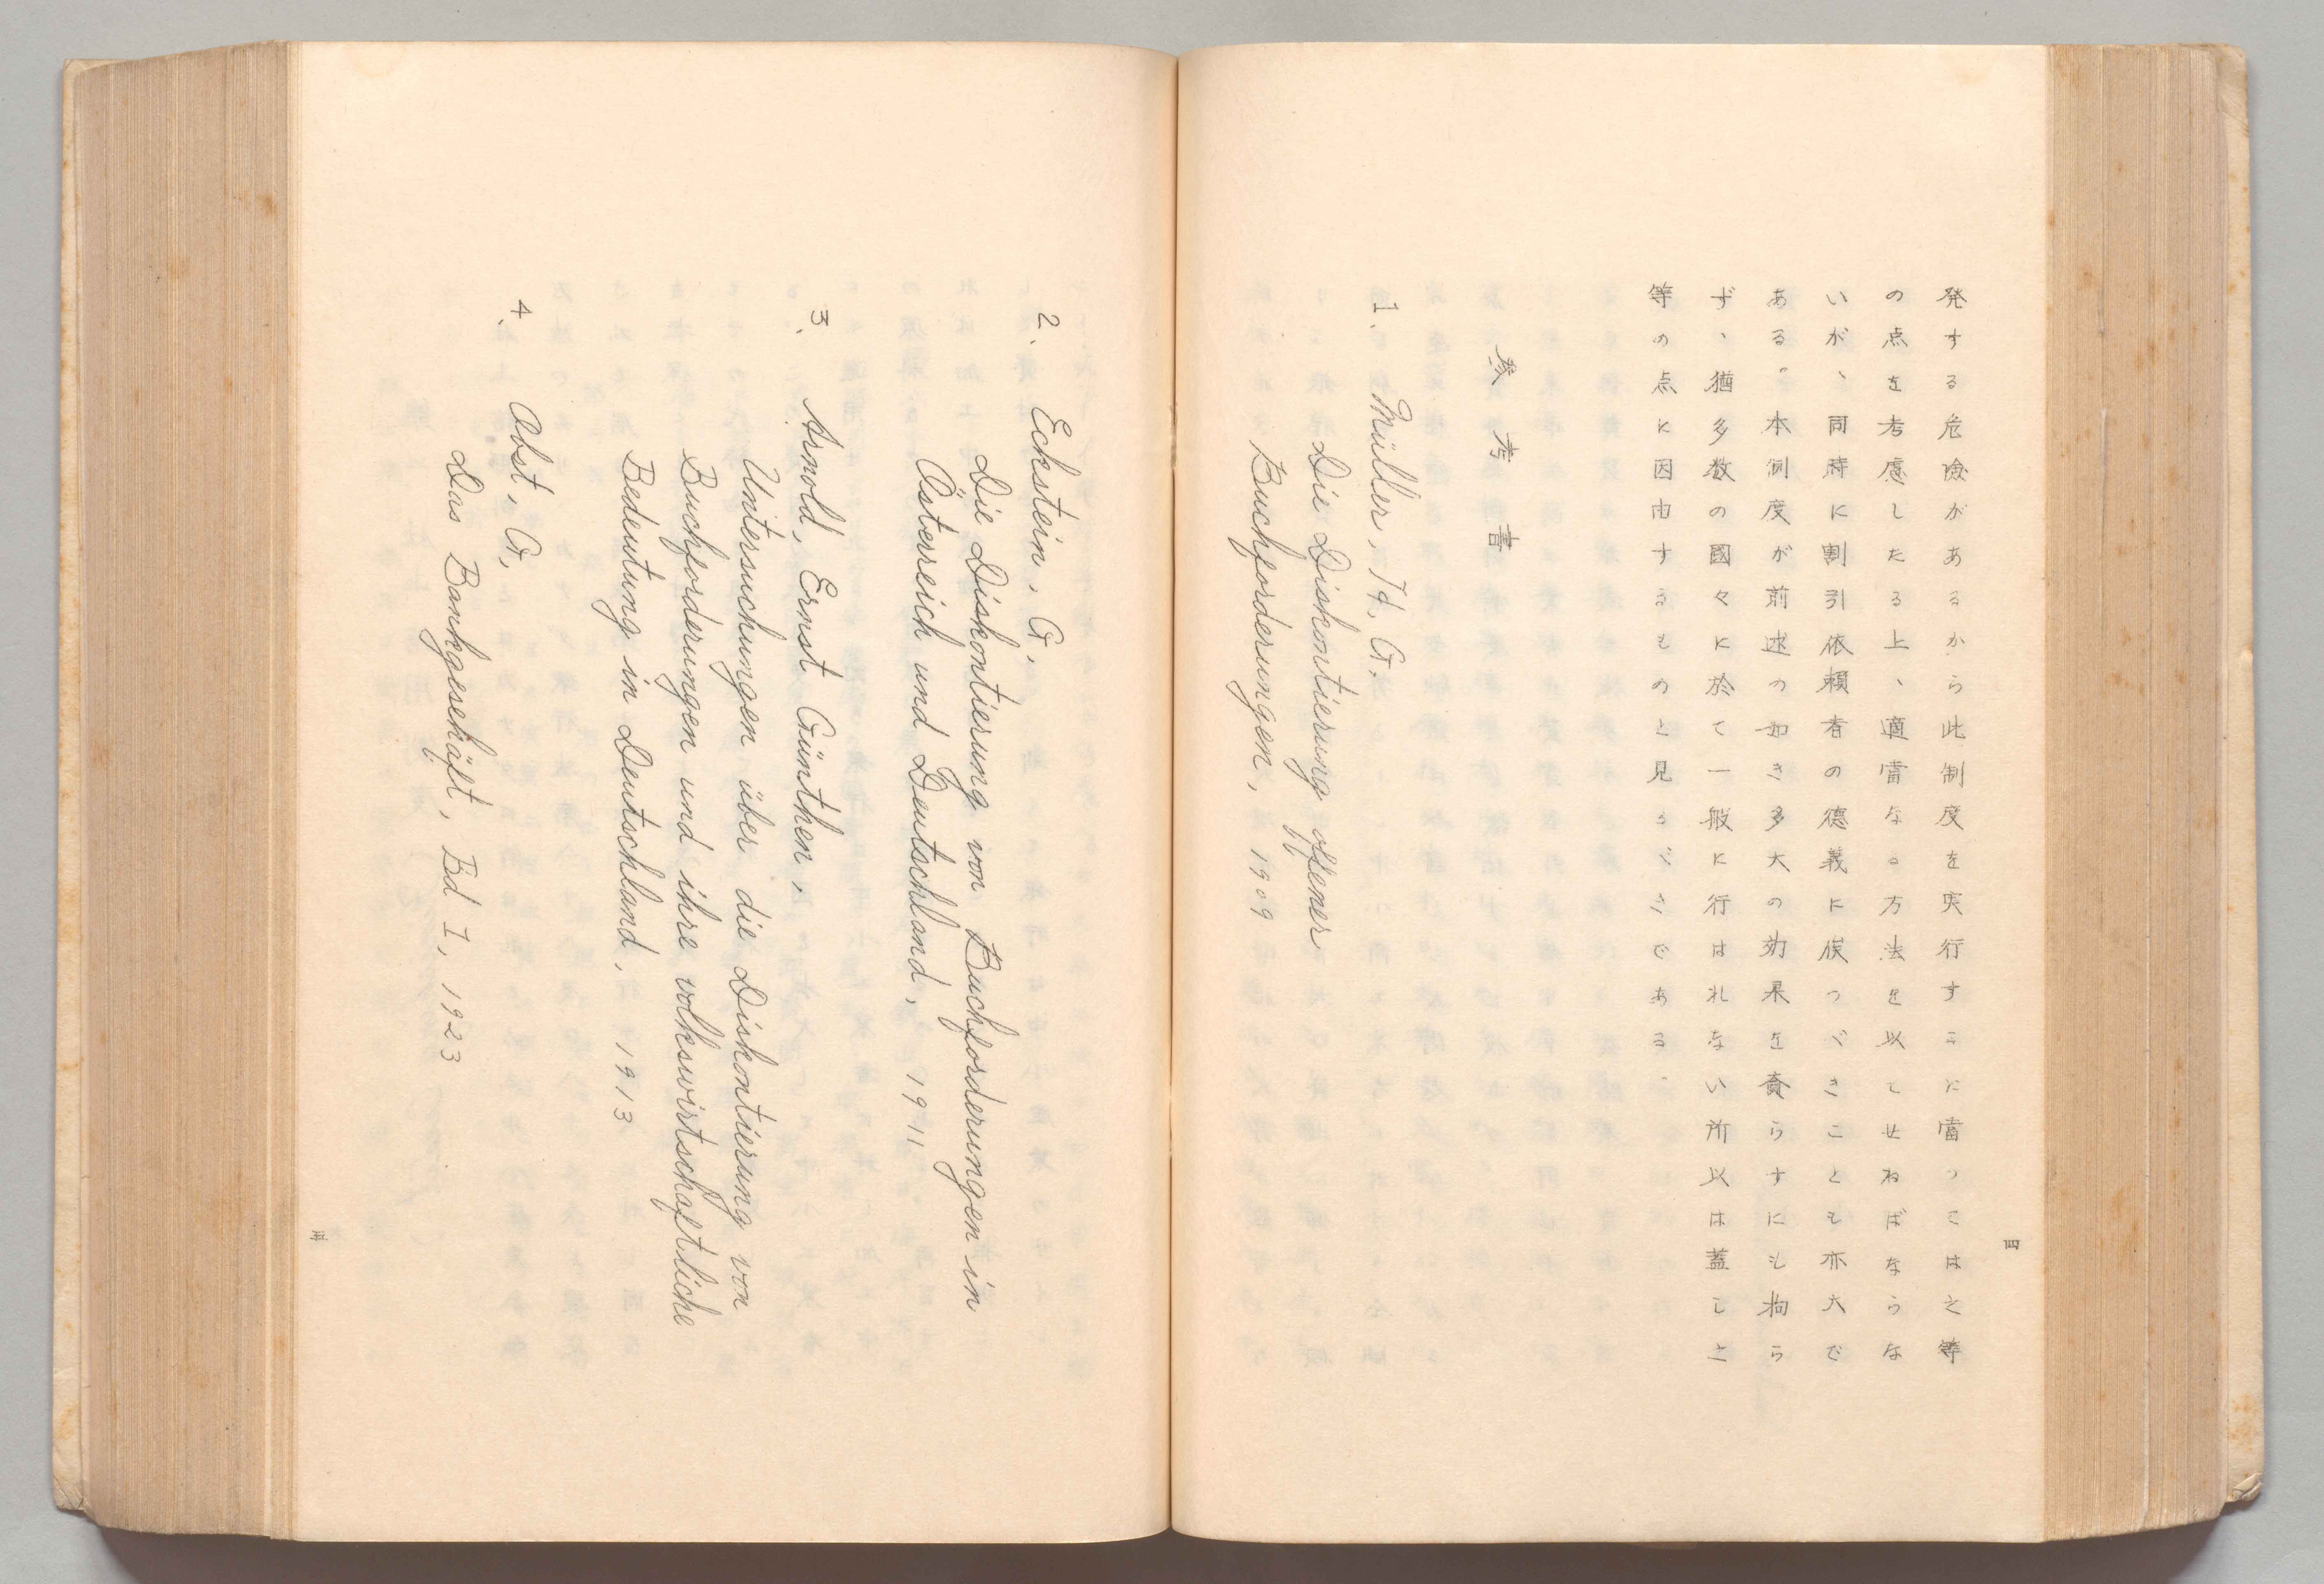 発する危険があるから此制度を実行するに當つては之等
の点を考慮したる上、適當なる方法を以てせねばならな
いが、同時に割引依頼者の德義に俟つべきことも亦大で
ある。本制度が前述の如き多大の効果を齎らすにも拘ら
ず、猶多数の國々に於て一般に行はれない所以は蓋しこ
等の点に因由するものと見るべきである、
参考書
1. Müller, H. G.
Die Diskontierung offener
Buchforderungen, 1909
四
2. Eckstein, G.
Die Diskontierung von Buchforderungen in
Österreich und Deutschland, 1911
3. Arnold, Ernst Günther,
Untersuchungen über die Diskontierung von
Buchforderungen und ihre volkswirtschaftliche
Bedeutung in Deutschland, 1913
4. Obst, G.
Das Bankgeschäft, Bd I, 1923